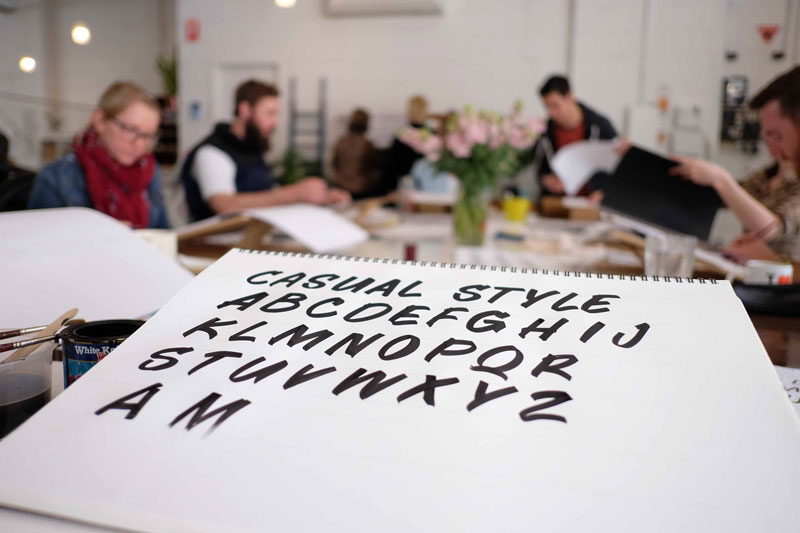 CASUAL STYLE
ABCDEFGHIJ
KLMNOPQR
STUVWXYZ
A M
White